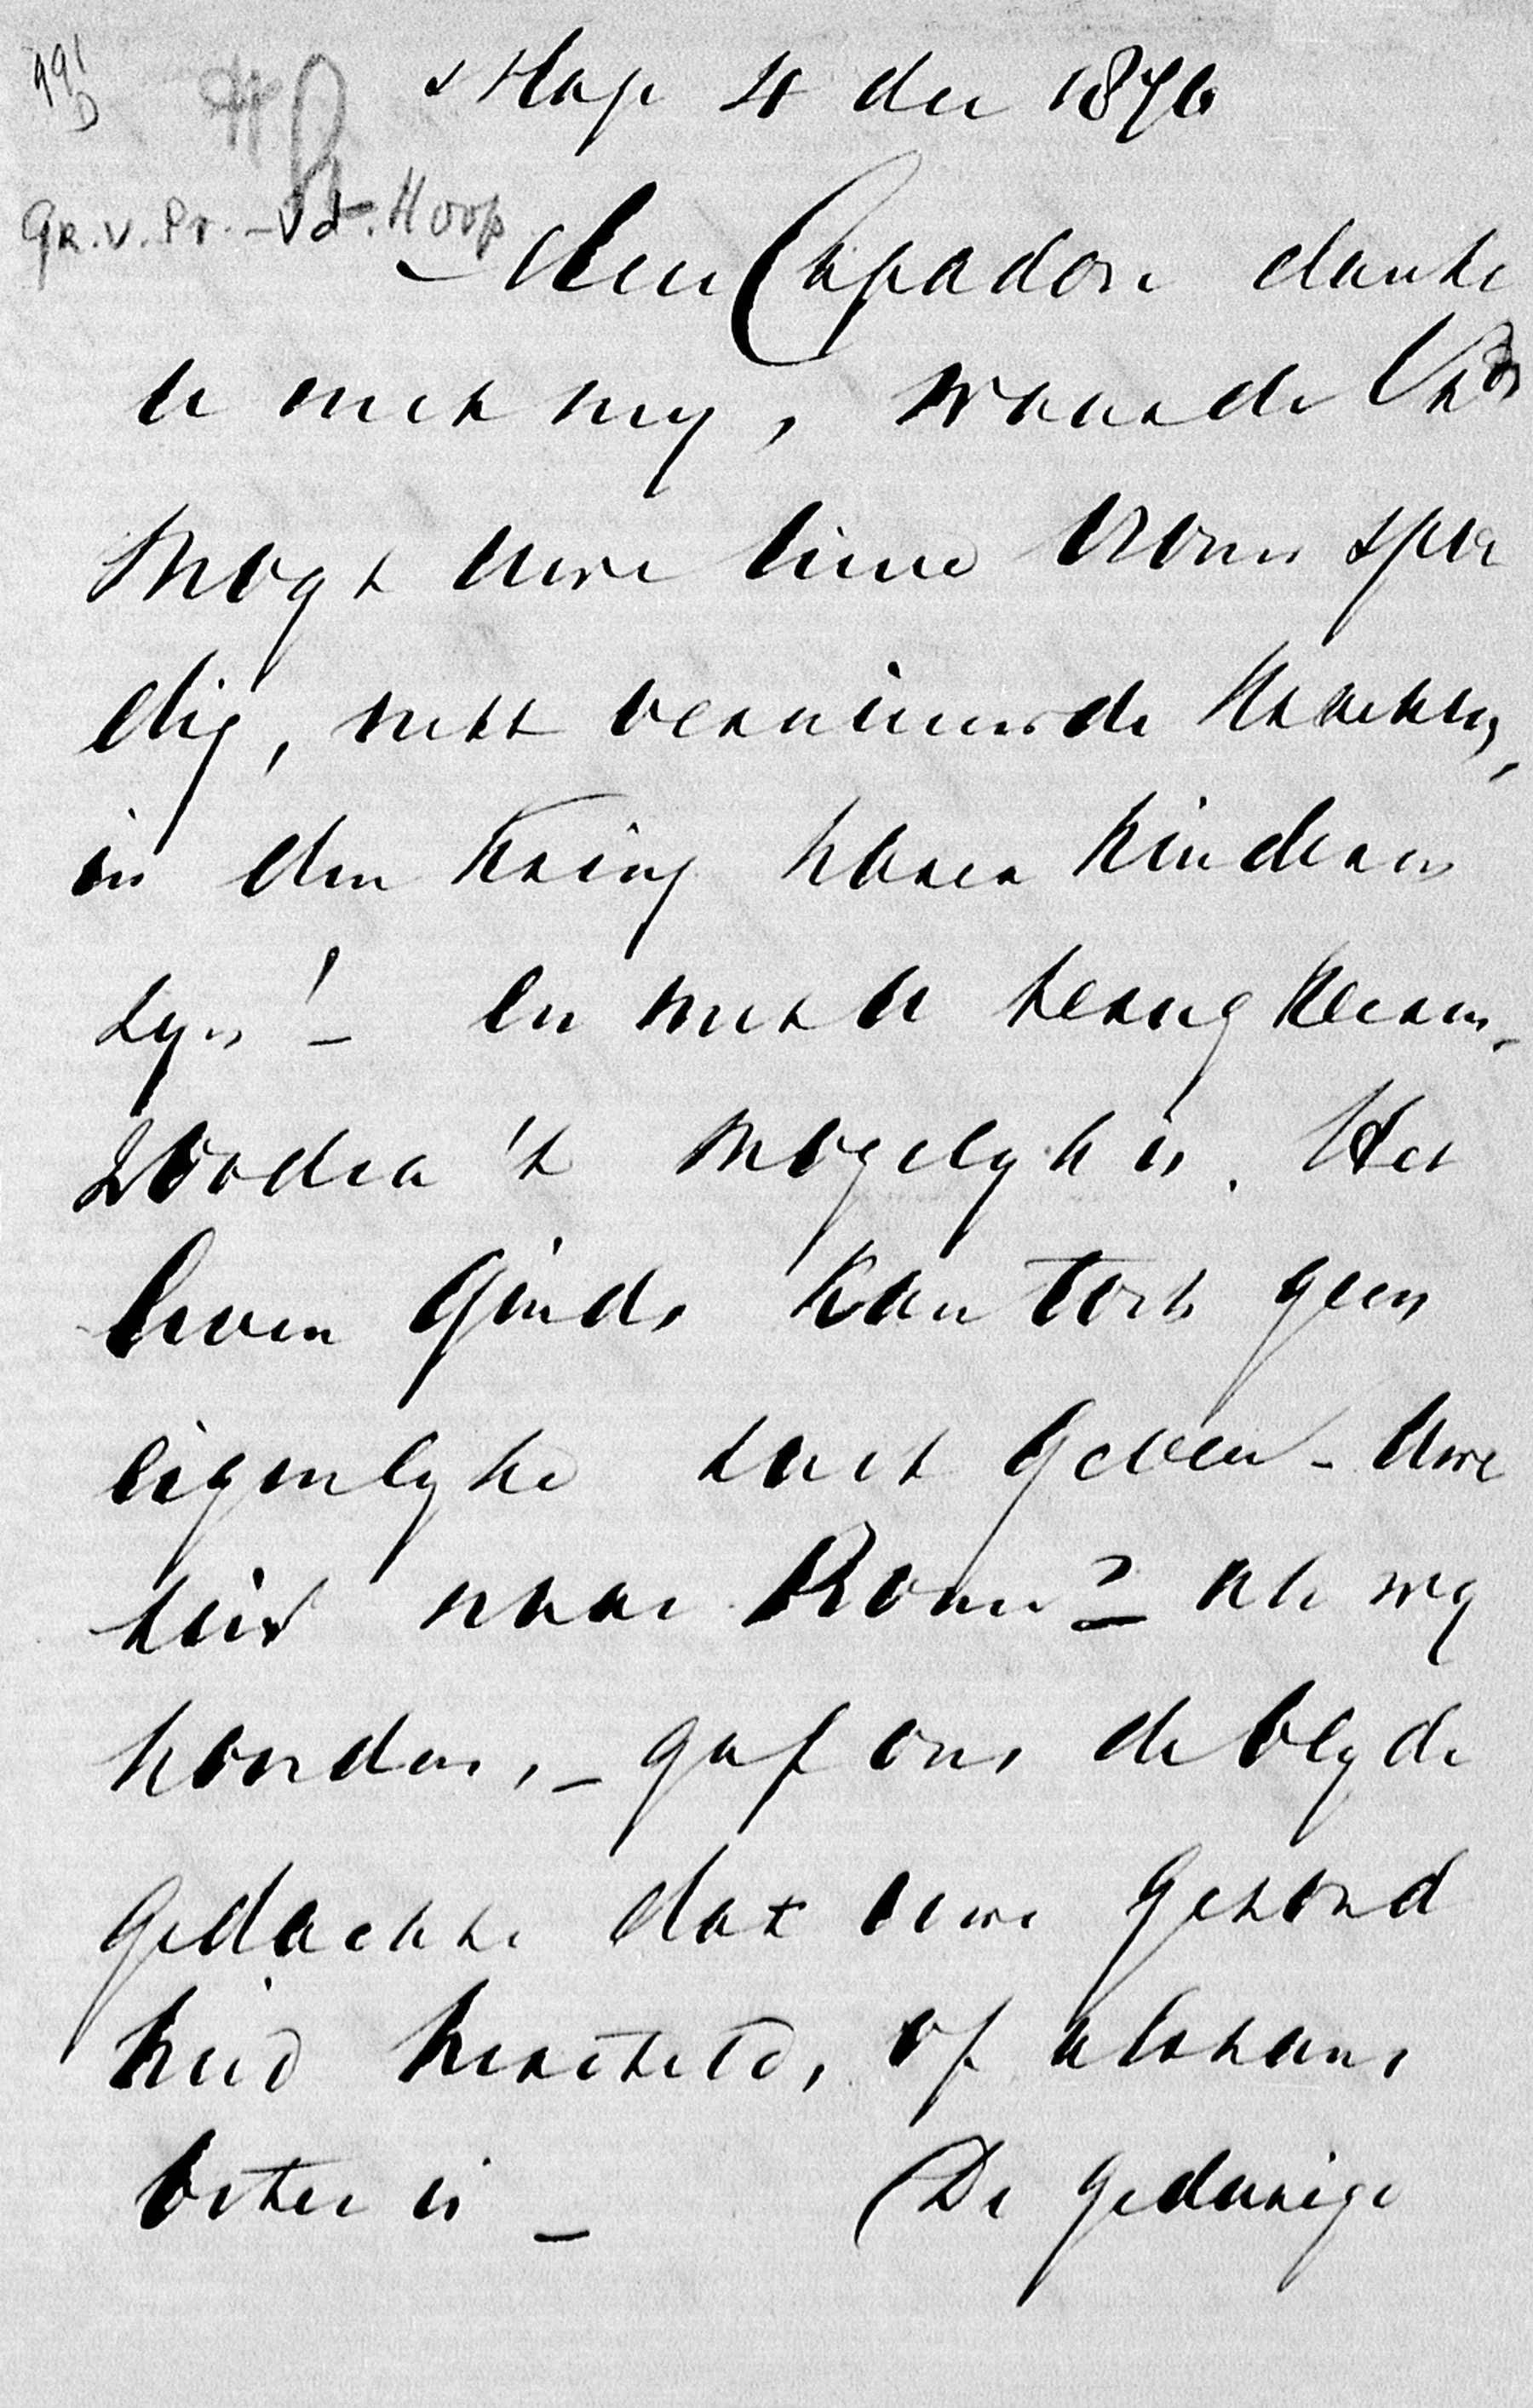 991
D
Gr. v. Pr. - Vd. Hoop
s Hage 4 dec 1876
Mevr Capadose dankt
u met my, waarde Vrd
Mogt uwe lieve vrouw spoe
dig, met vernieuwde krachten,
in den kring harer kinderen
zyn! - En met u terugkeeren,
zoodra 't mogelyk is. Het
leven ginds kan toch geen
eigenlyke rust geven - Uwe
reis naar Rome? als wy
hoorden, - gaf ons de blyde
gedachte dat uwe gezond
heid hersteld, of althans
beter is - De gedurige